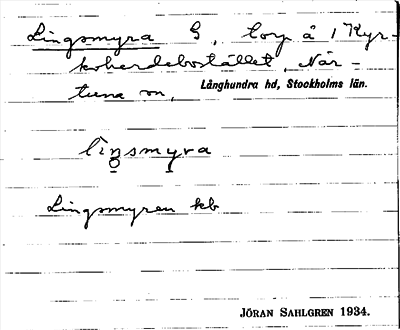 Lingsmyra S, torp å Kyr-
koherdebostället, När-
tuna sn,
Långhundra hd, Stockholms län.
lìnsmyra
Lingsmyren kb
JÖRAN SAHLGREN 1934.